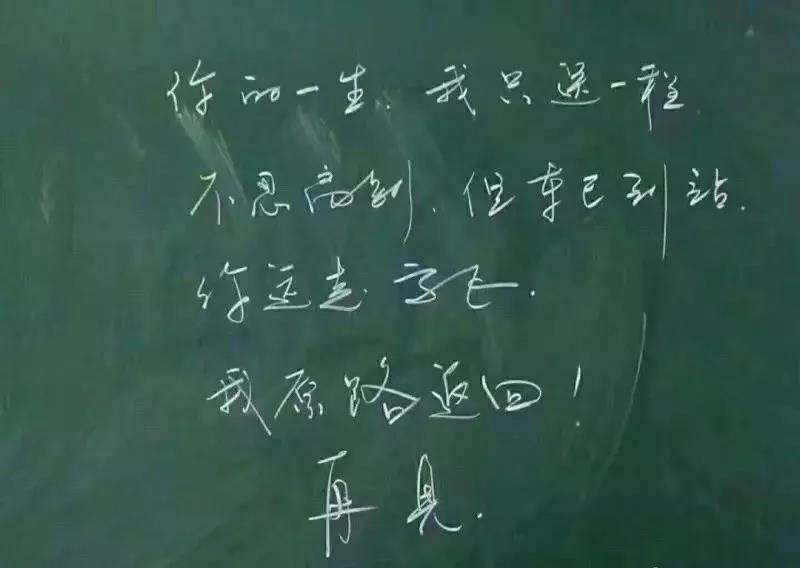 你的一生.我只送一程
不忍离别.但车已到站.
你远走高飞.
我原路返回!
再见.